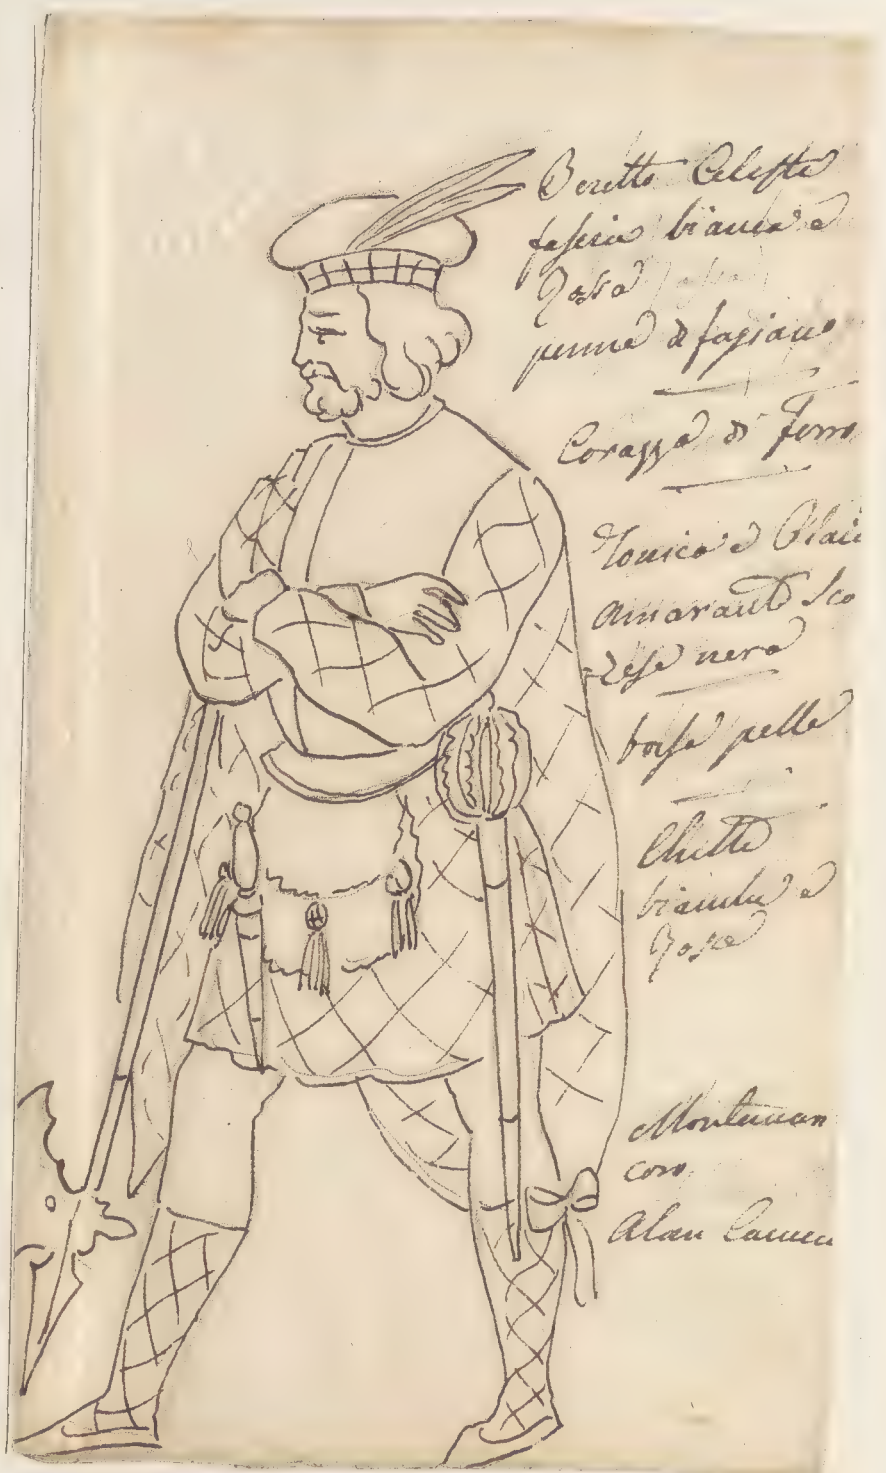 Beretto Celeste
fascia bianca e
Rossa
penne di fagiano
Corazza di ferro
Tonica e Plaid
amaranto Sco
zese nero
borsa pelle
Ghette
bianche e
Rosse
Montanari
coro
Alan